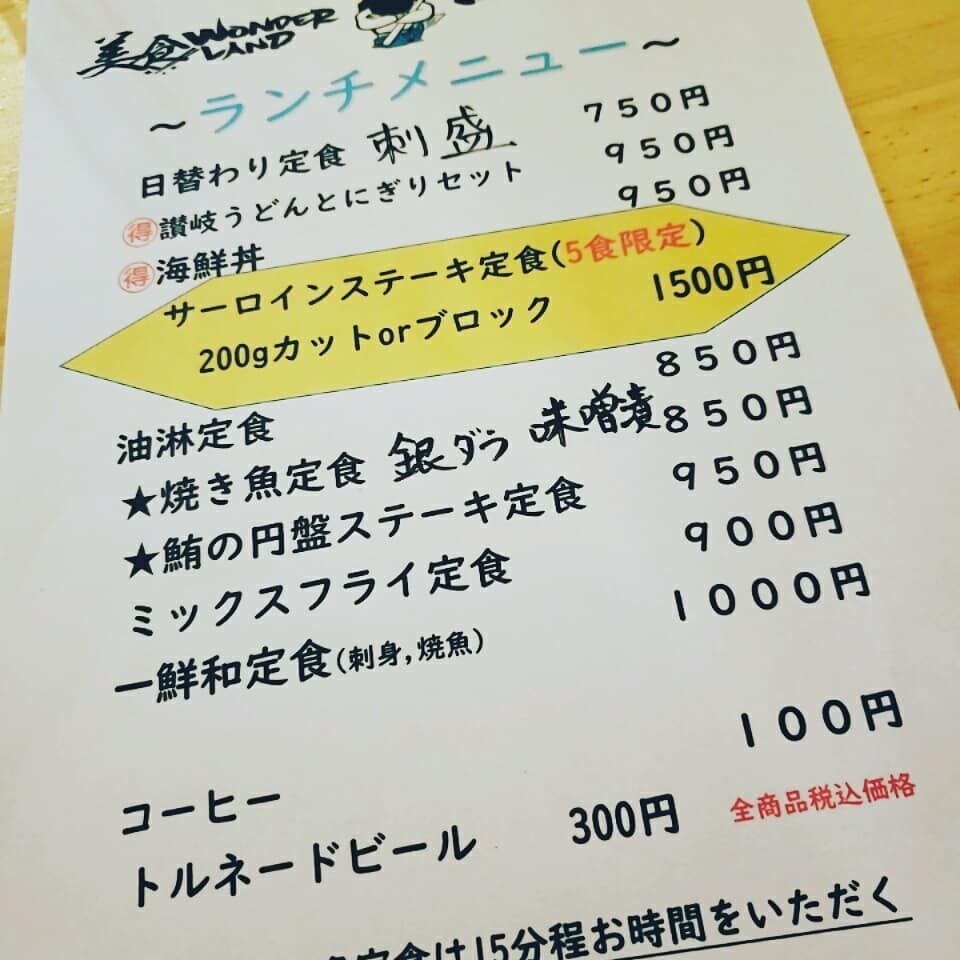 美食WONDER
LAND
～ランチメニュー～
日替わり定食 刺盛 750円
得 讃岐うどんとにぎりセット 950円
得 海鮮丼 950円
サーロインステーキ定食(5食限定)
200gカットorブロック 1500円
油淋定食 850円
★焼き魚定食 銀ダラ 味噌漬 850円
★鮪の円盤ステーキ定食 950円
ミックスフライ定食 900円
一鮮和定食(刺身,焼魚) 1000円
コーヒー 100円
トルネードビール 300円 全商品税込価格
定食は15分程お時間をいただく